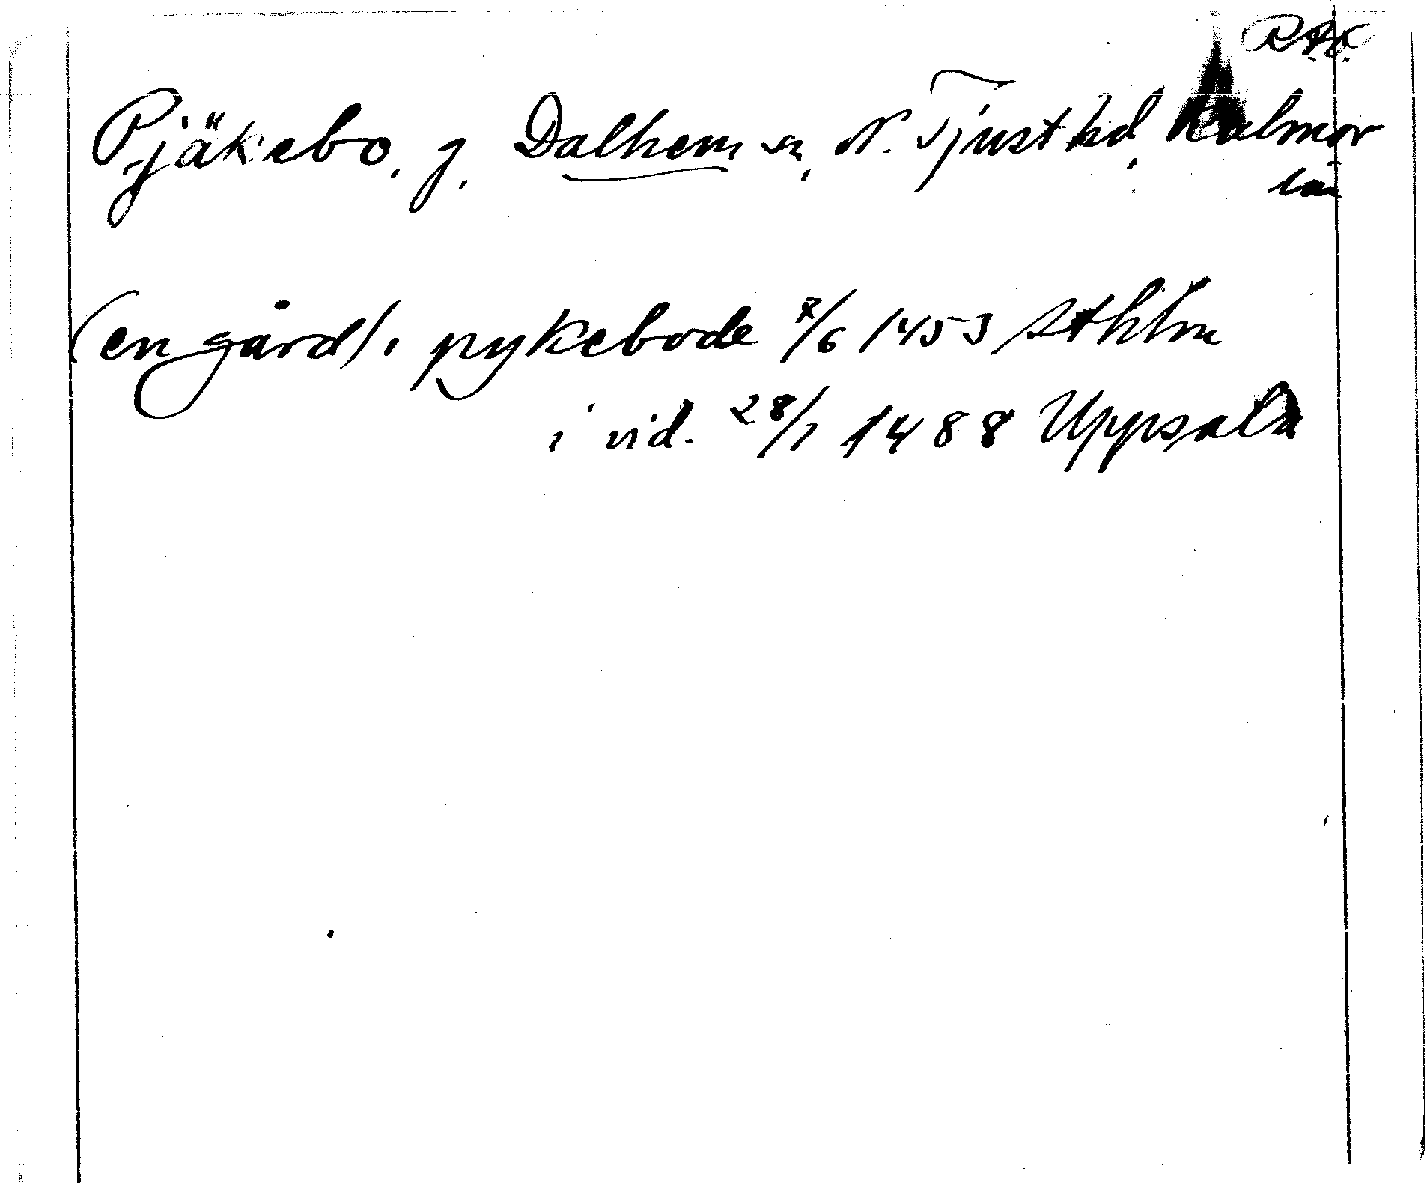 RAK.
Pjäkebo, g. Dalhem sn, N. Tjust hd, Kalmar
län
(en gård) i pykebode 8/6 1453 Sthlm
i vid. 28/1 1488 Uppsala